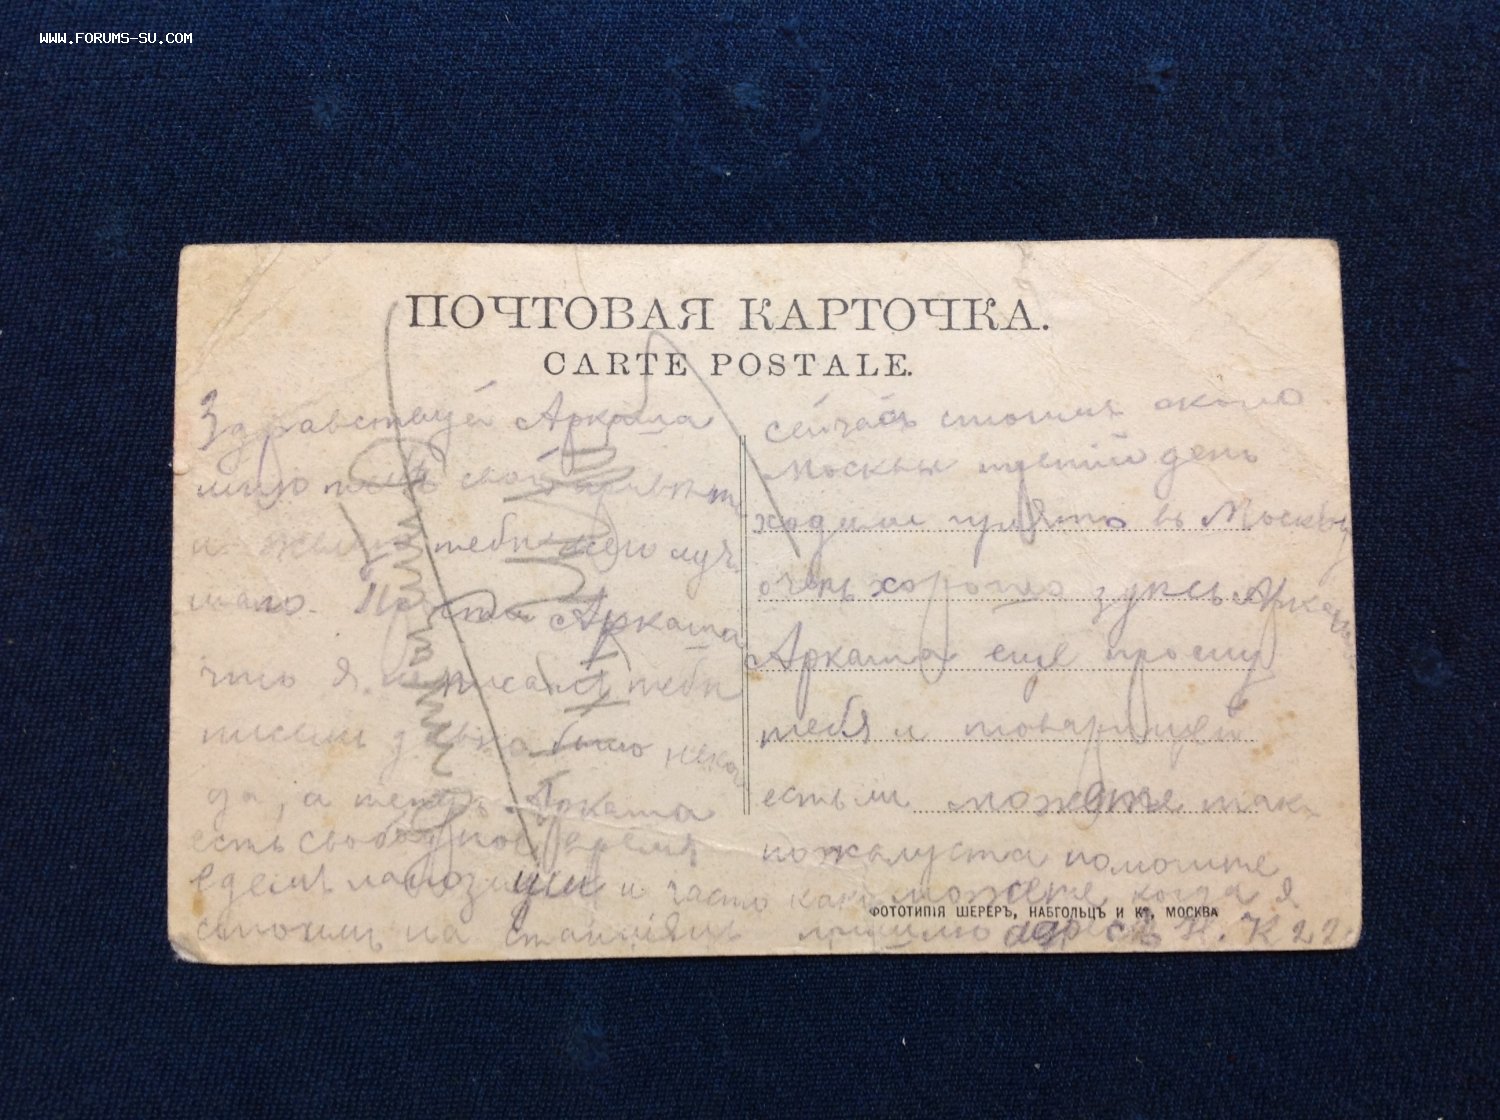 WWW.FORUMS-SU.COM
ПОЧТОВАЯ КАРТОЧКА.
CARTE POSTALE.
Здравствуй Аркаша
шлю тебѣ свой привѣт
и желаю тебѣ всего луч
шаго. Прости Аркаша
что я не писалъ тебѣ
письмы было неког
да, а теперь Аркаша
есть свободное время
едемъ и часто
стоимъ на станціяхъ
сейчасъ стоимъ около
Москвы третій день
ходили гулять въ Москву
очень хорошо здѣсь Аркаша
Аркаша еще прошу
тебя и товарищей
если можете так
пожалуста помогите
как можете когда я
ФОТОТИПІЯ ШЕРЕРЪ, НАБГОЛЬЦЪ И Кº, МОСКВА
пришлю адресъ Н. К 22